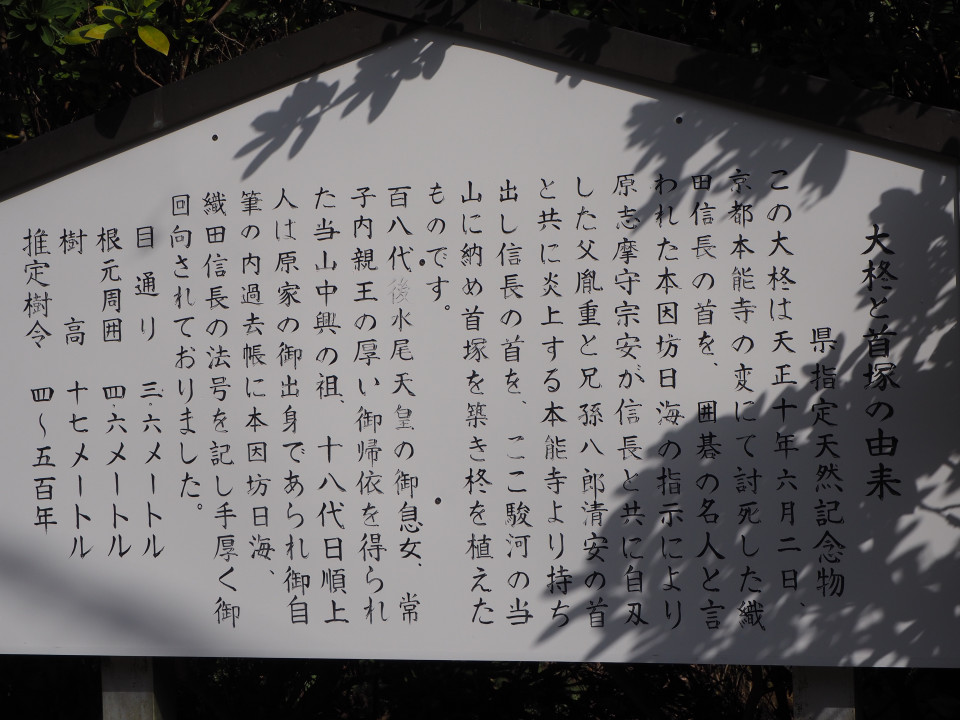 大柊と首塚の由来
県指定天然記念物
この大柊は天正十年六月二日、
京都本能寺の変にて討死した織
田信長の首を、囲碁の名人と言
われた本因坊日海の指示により
原志摩守宗安が信長と共に自刃
した父胤重と兄孫八郎清安の首
と共に炎上する本能寺より持ち
出し信長の首を、ここ駿河の当
山に納め首塚を築き柊を植えた
ものです。
百八代後水尾天皇の御息女、常
子内親王の厚い御帰依を得られ
た当山中興の祖、十八代日順上
人は原家の御出身であられ御自
筆の内過去帳に本因坊日海、
織田信長の法号を記し手厚く御
回向されておりました。
目通り 三・六メートル
根元周囲 四・六メートル
樹高 十七メートル
推定樹令 四〜五百年